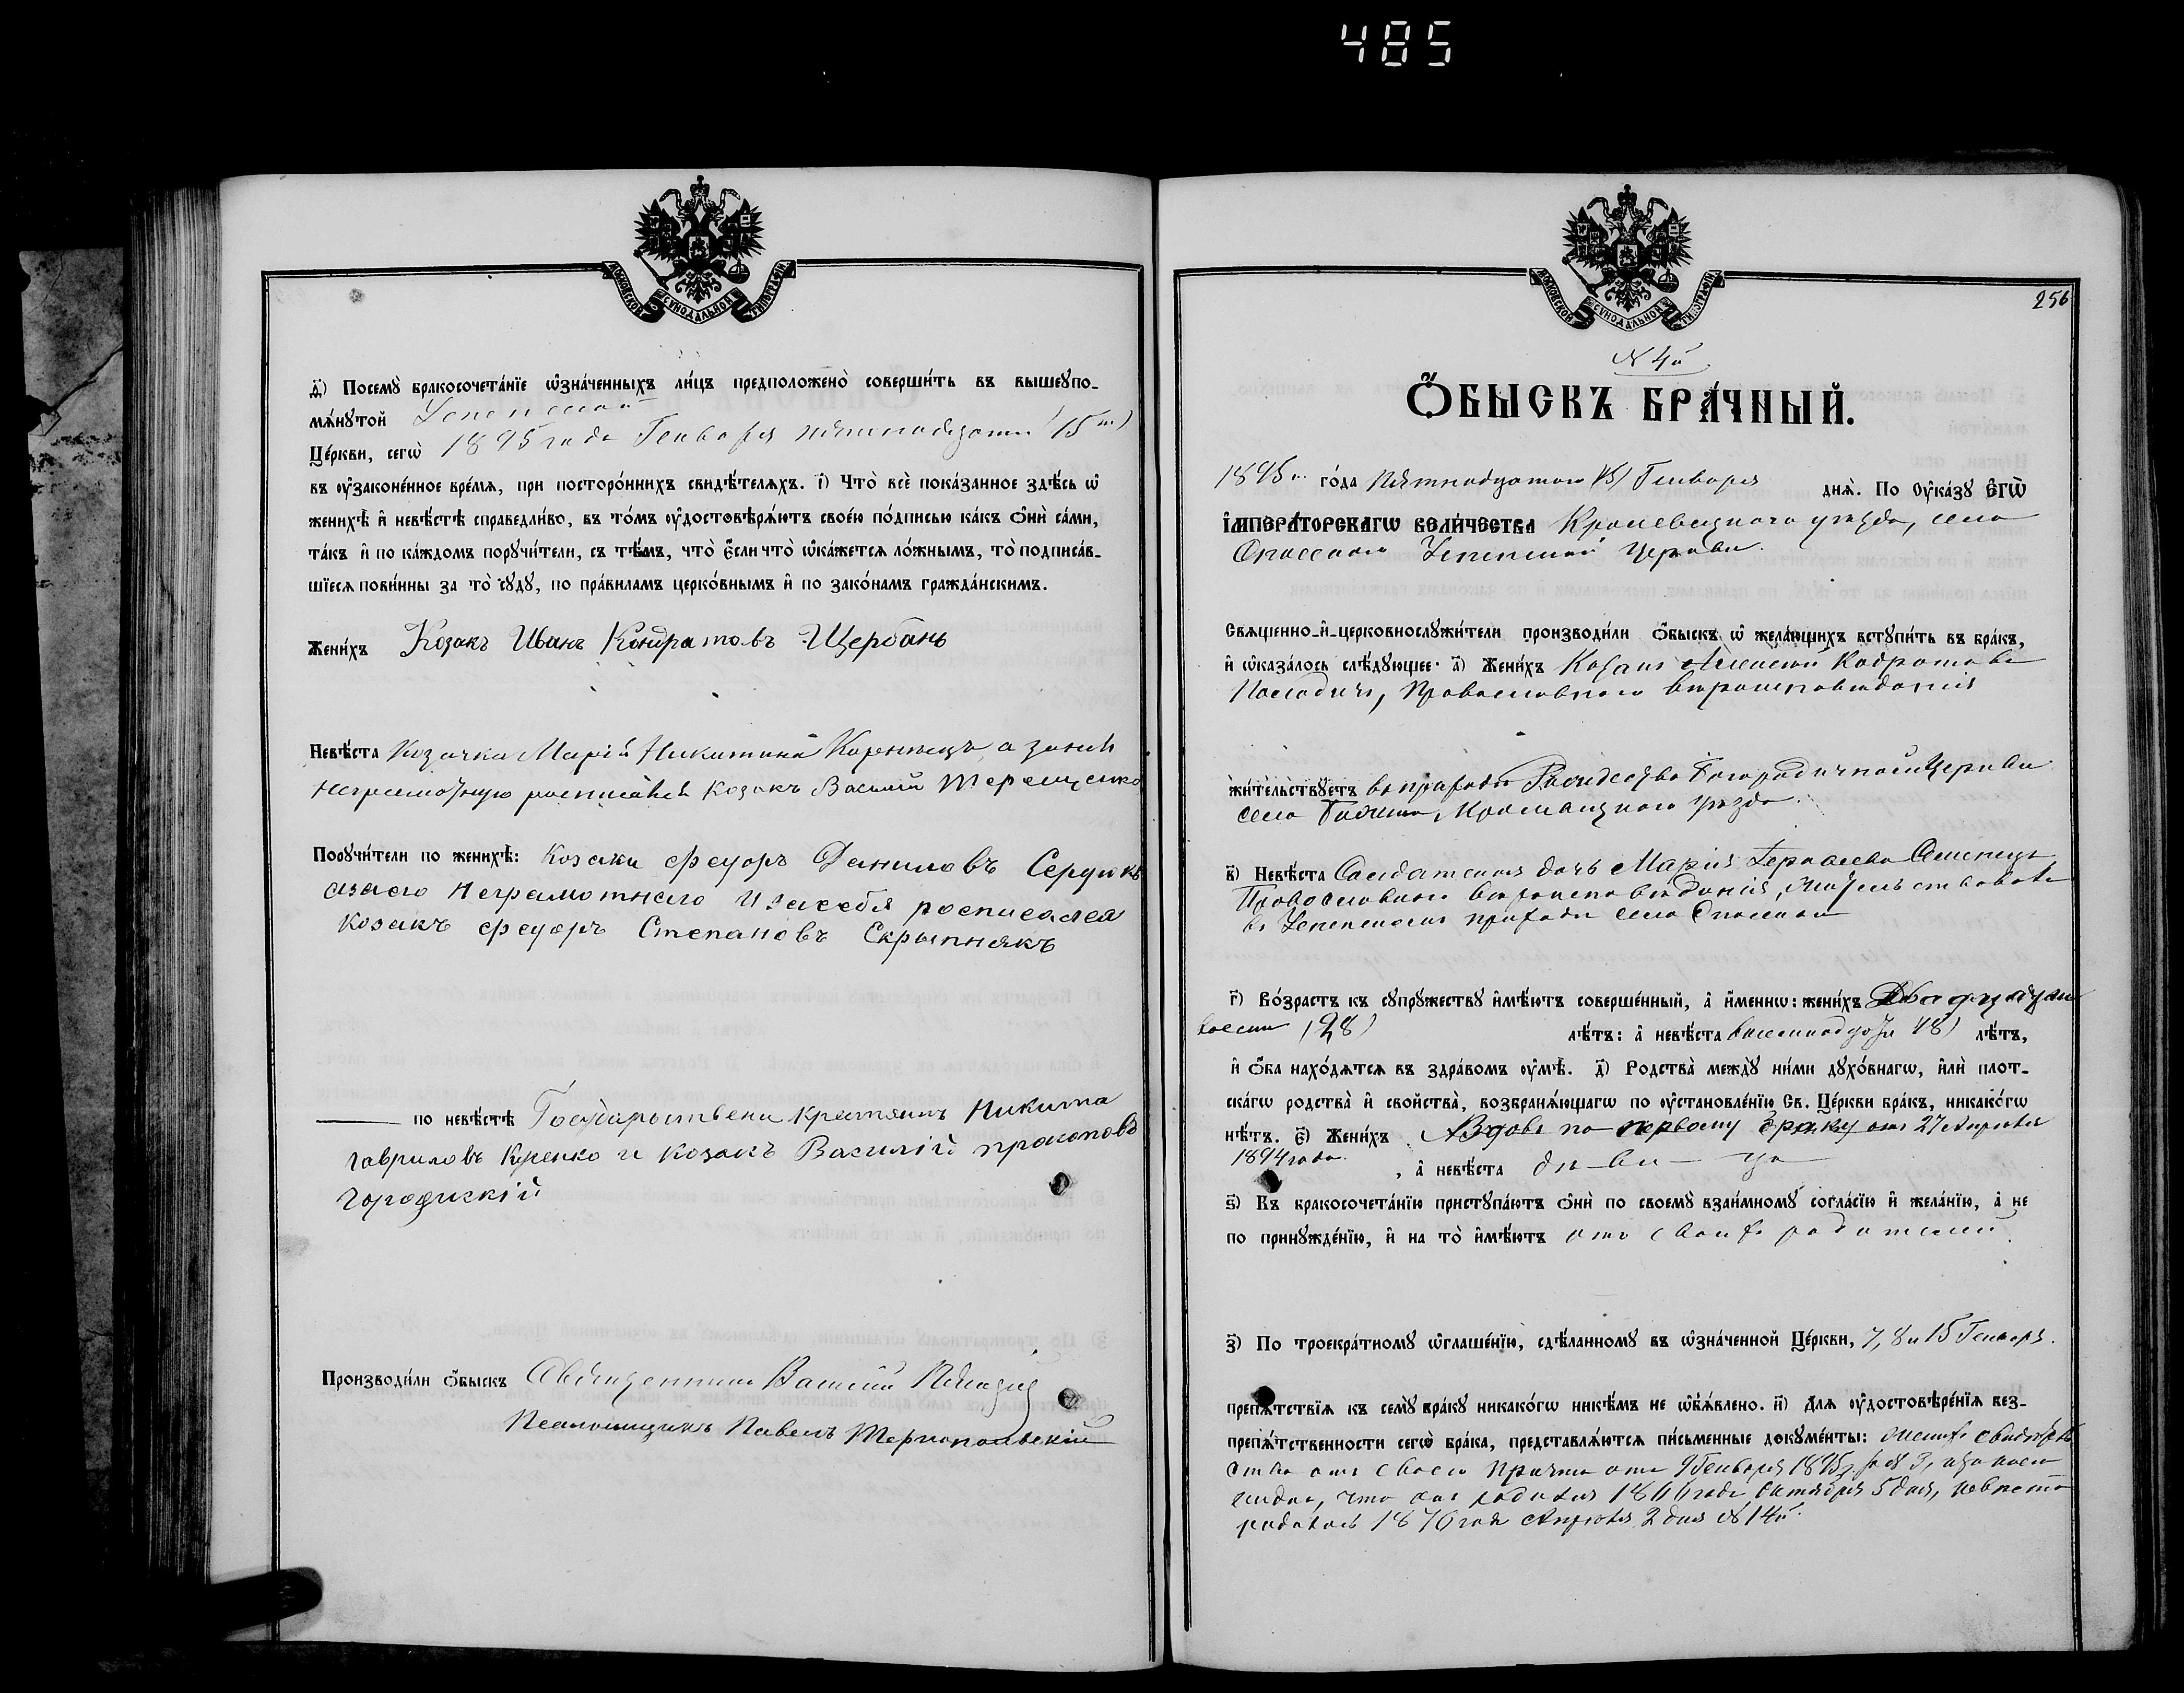 485
МОСКОВСКОЙ СУНОДАЛЬНОЙ ТИПОГРАФІИ
д҃) Посемꙋ̀ бракосочета́нїе ѡ҆зна́ченныхъ ли́цъ предположено̀ соверши́ть въ вышеꙋпо-
мѧ́нꙋтой Успенской
Це́ркви, сегѡ̀ 1895 года Генваря пятнадцатаго (15го)
въ ᲂу҆законе́нное вре́мѧ, при посторо́ннихъ свидѣ́телѧхъ. і҃) Что̀ всѐ пока́занное здѣ́сь ѡ҆
женихѣ̀ и҆ невѣ́стѣ справедли́во, въ то́мъ ᲂу҆достовѣрѧ́ютъ свое́ю по́дписью ка́къ ѻ҆нѝ са́ми,
та́къ и҆ по ка́ждомъ порꙋчи́тели, съ тѣ́мъ, что̀ є҆́сли что̀ ѡ҆ка́жетсѧ ло́жнымъ, то̀ подписа́в-
шїесѧ пови́нны за то̀ сꙋдꙋ̀, по пра́виламъ церко́внымъ и҆ по зако́намъ гражда́нскимъ.
Жени́хъ Козакъ Иванъ Кондратовъ Щербань
Невѣ́ста Козачка Марія Никитина Коренецъ а за нее
неграмотную росписался Козакъ Василій Терещенко
Порꙋчи́тели по женихѣ̀: Козаки Федоръ Даниловъ Сердюкъ
а за его неграмотнаго и за себя росписался
козакъ Федоръ Степановъ Скрыпнякъ
по невѣ́стѣ Государствени крестянинъ Никита
Гавриловъ Куренко и Козакъ Василій Прокоповъ
Городискій
Производи́ли ѻ҆́быскъ Священникъ Василій
Псаломщикъ Павелъ Тернопольвскій
МОСКОВСКОЙ СУНОДАЛЬНОЙ ТИПОГРАФІИ
256
№ 4й
Ѻ҆́БЫСКЪ БРА́ЧНЫЙ.
1895го го́да Пятнадцатаго (15) Генваря днѧ̀. По Оу҆ка́зꙋ Є҆гѡ̀
І҆мпера́торскагѡ Вели́чества Кролевецкаго уезда, села
Спасскаго Успенской Церкви.
Свѧще́нно-и҆-церковнослꙋжи́тели производи́ли ѻ҆́быскъ ѡ҆ жела́ющихъ встꙋпи́ть въ бра́къ,
и҆ ѡ҆каза́лось слѣ́дꙋющее: а҃) Жени́хъ Козакъ Алексей Кодратовъ
Православнаго вероисповеданія
жи́тельствꙋетъ въ приходе Рождество Богородичной Церкви
села Кролевецкаго уезда.
в҃) Невѣ́ста Солдатская дочь Марія
Православнаго вероисповеданія, жительствовала
въ Успенскомъ приходе села Спасскаго
г҃) Во́зрастъ къ сꙋпрꙋ́жествꙋ и҆мѣ́ютъ соверше́нный, а҆ и҆́меннѡ: жени́хъ Двадцать
восемь (28) лѣ́тъ: а҆ невѣ́ста восемнадцать (18) лѣ́тъ,
и҆ ѻ҆́ба нахо́дѧтсѧ въ здра́вомъ ᲂу҆мѣ̀. д҃) Родства̀ междꙋ̀ ни́ми дꙋхо́внагѡ, и҆лѝ плот-
ска́гѡ родства̀ и҆ сво́йства, возбранѧ́ющагѡ по ᲂу҆становле́нїю Св. Це́ркви бра́къ, никако́гѡ
нѣ́тъ. є҃) Жени́хъ Вдовъ по первому браку отъ 27 Апреля
1894 года, а҆ невѣ́ста де-ви-ца
ѕ҃) Къ бракосочета́нїю пристꙋпа́ютъ ѻ҆нѝ по своемꙋ̀ взаи́мномꙋ согла́сїю и҆ жела́нїю, а҆ не
по принꙋжде́нїю, и҆ на то̀ и҆мѣ́ютъ отъ своихъ родителей.
з҃) По троекра́тномꙋ ѡ҆глаше́нїю, сдѣ́ланномꙋ въ ѡ҆зна́ченной Це́ркви, 7, 8 и 15 Генваря.
препѧ́тствїѧ къ семꙋ̀ бра́кꙋ никако́гѡ никѣ́мъ не ѡ҆бъѧ́влено. и҃) Длѧ ᲂу҆достовѣре́нїѧ без-
препѧ́тственности сегѡ̀ бра́ка, представлѧ́ютсѧ пи́сьменные докꙋме́нты: жениха свидетель
ство отъ своего Причта отъ 9 Генваря 1895 г. за № 3, изъ коего
видно, что онъ родился 1866 года Октября 5 дня, невеста
родилась 1876 года Апреля 2 дня № 14й.